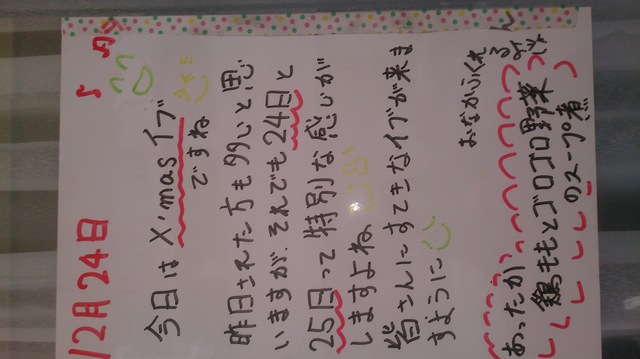 12月24日
今日は X'masイブ
ですね
昨日された方も多いと思
いますが、それでも24日と
25日って特別な感じが
しますよね
皆さんにすてきなイブが来ま
すように
おなかふくれ
るよ
あったか
鶏ももとゴロゴロ野菜
のスープ煮